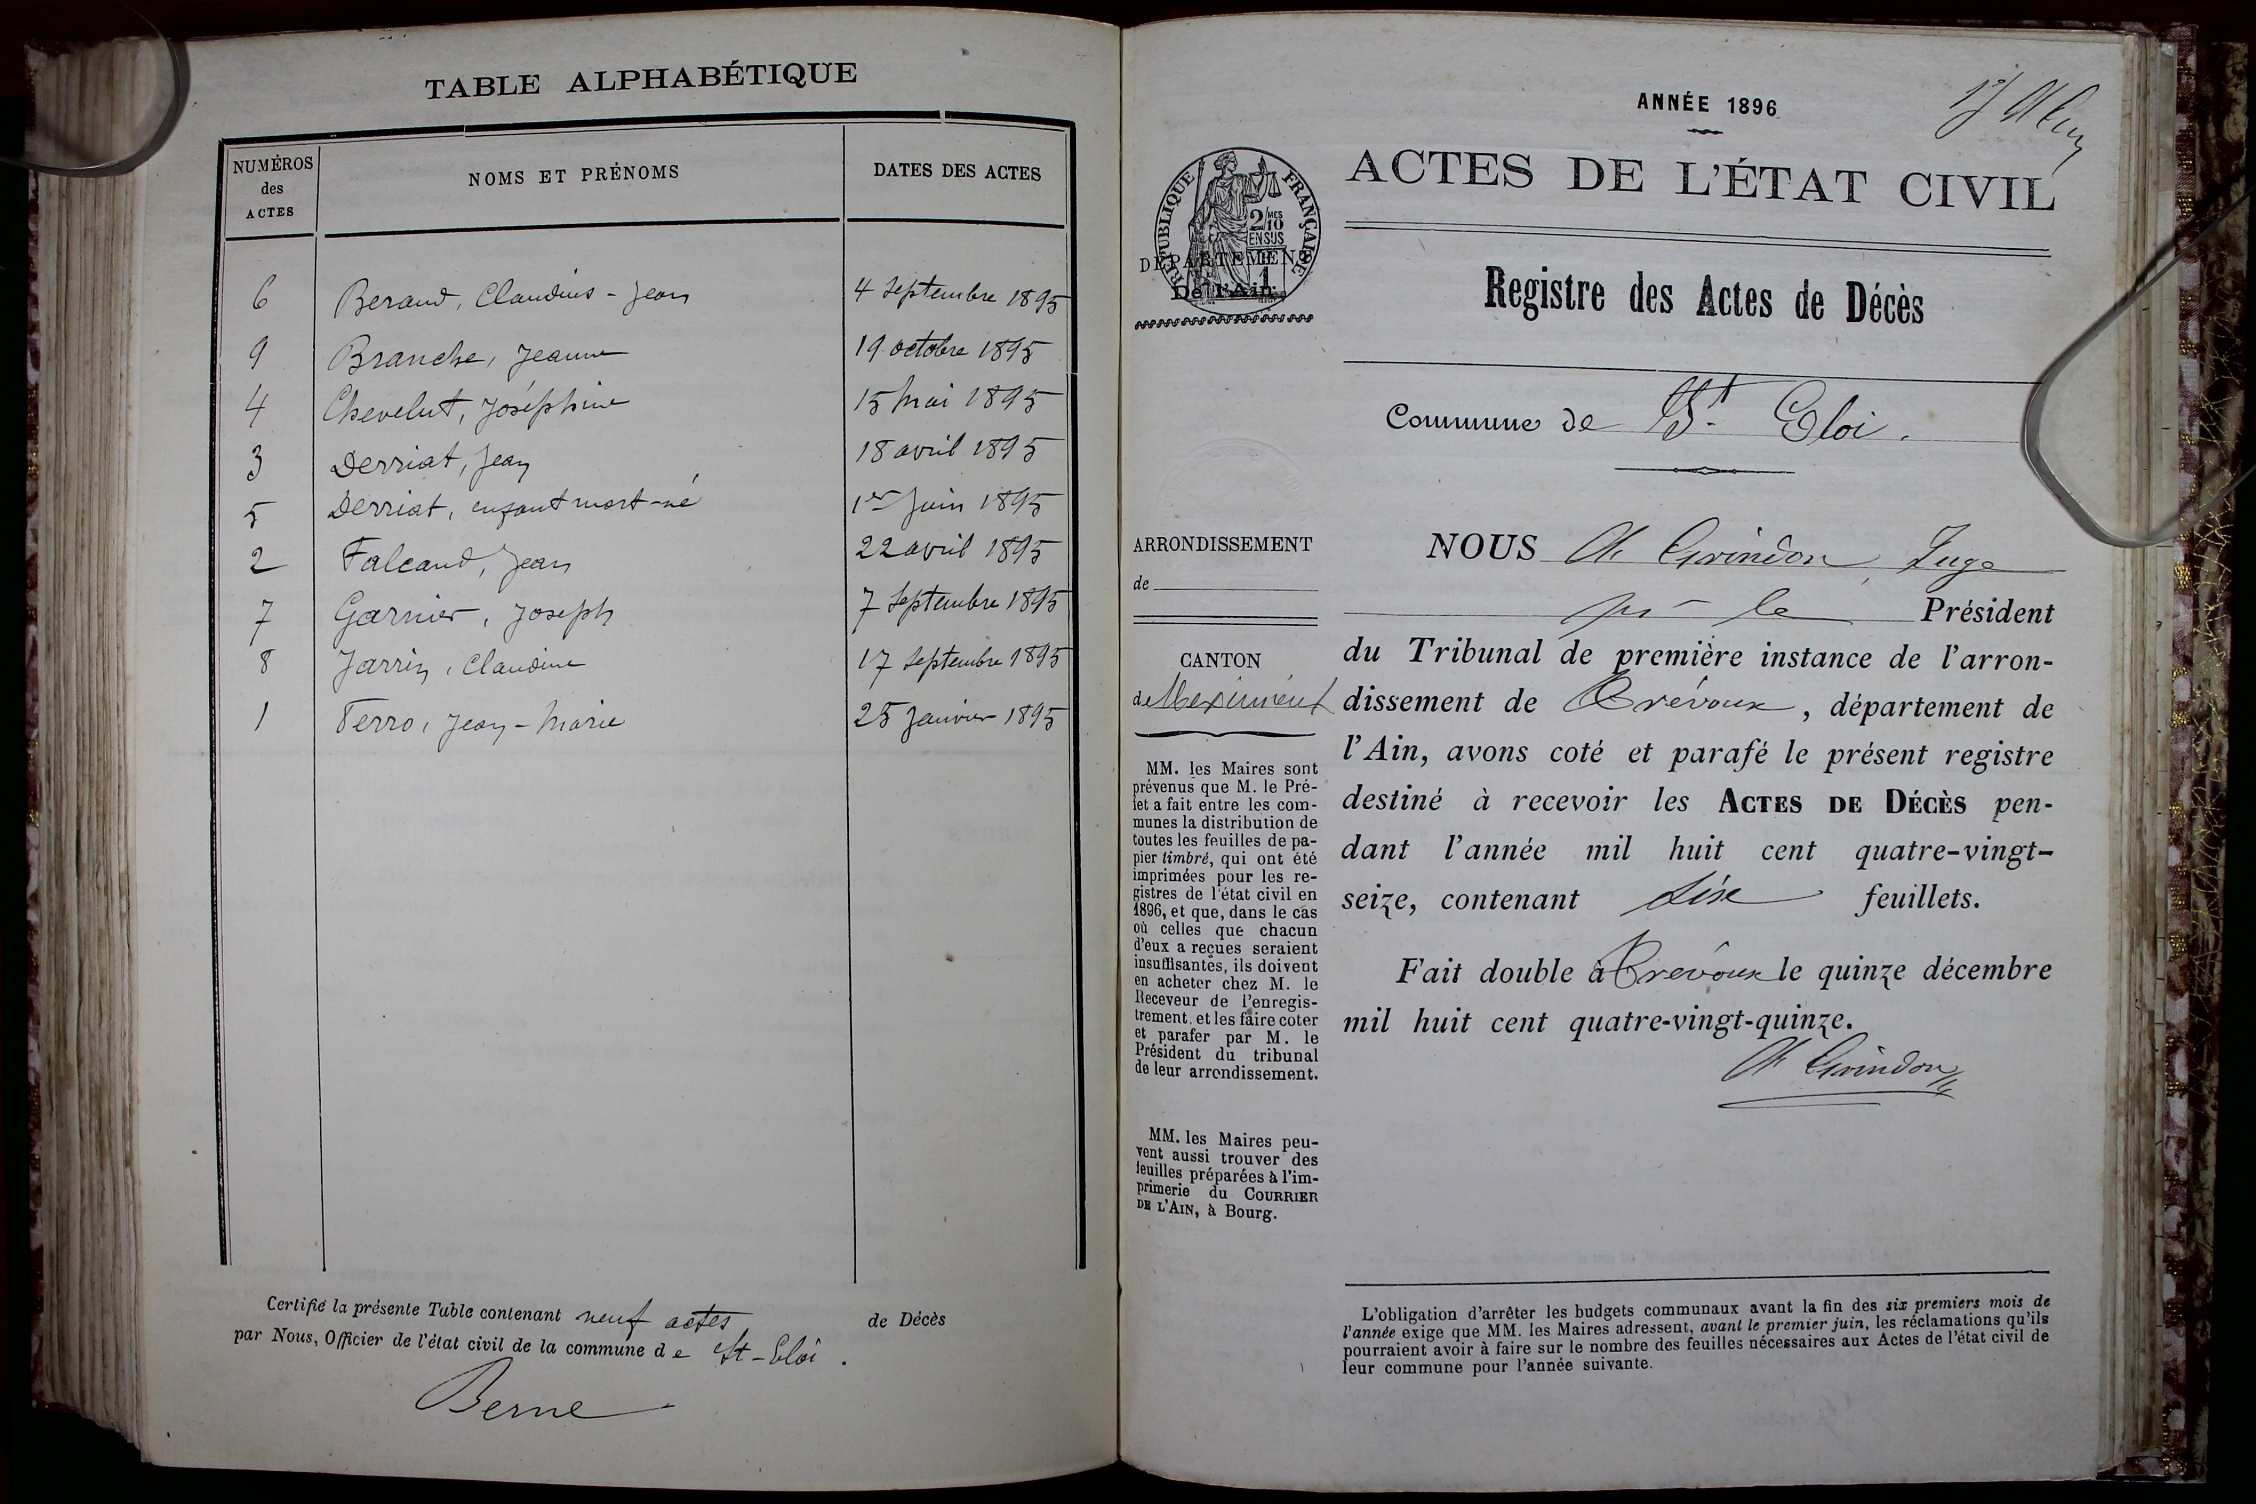 TABLE ALPHABÉTIQUE
NUMÉROS des ACTES NOMS ET PRÉNOMS DATES DES ACTES
6 Beraud, Claudius - Jean 4 septembre 1895
9 Branche, Jeanne 19 octobre 1895
4 Chevelut, Joséphine 15 Mai 1895
3 Derriat, Jean 18 avril 1895
5 Derriat, enfant mort-né 1er Juin 1895
2 Falcand, Jean 22 avril 1895
7 Garnier, Joseph 7 septembre 1895
8 Jarrin, Claudine 17 septembre 1895
1 Terro, Jean-Marie 25 Janvier 1895
Certifié la présente Table contenant neuf actes de Décès
par Nous, Officier de l'état civil de la commune de St-Eloi.
Berne
ANNÉE 1896
RÉPUBLIQUE FRANÇAISE
2/10 MES
EN SUS
DÉPARTEMENT
De l'Ain
ACTES DE L'ÉTAT CIVIL
Registre des Actes de Décès
Commune de St. Eloi.
ARRONDISSEMENT
de
CANTON
de Meximieux
MM. les Maires sont
prévenus que M. le Pré-
fet a fait entre les com-
munes la distribution de
toutes les feuilles de pa-
pier timbré, qui ont été
imprimées pour les re-
gistres de l'état civil en
1896, et que, dans le cas
où celles que chacun
d'eux a reçues seraient
insuffisantes, ils doivent
en acheter chez M. le
Receveur de l'enregis-
trement, et les faire coter
et parafer par M. le
Président du tribunal
de leur arrondissement.
MM. les Maires peu-
vent aussi trouver des
feuilles préparées à l'im-
primerie du COURRIER
DE L'AIN, à Bourg.
NOUS Grindon, Juge
pr le Président
du Tribunal de première instance de l'arron-
dissement de Trévoux, département de
l'Ain, avons coté et parafé le présent registre
destiné à recevoir les ACTES DE DÉCÈS pen-
dant l'année mil huit cent quatre-vingt-
seize, contenant six feuillets.
Fait double à Trévoux le quinze décembre
mil huit cent quatre-vingt-quinze.
Grindon
L'obligation d'arrêter les budgets communaux avant la fin des six premiers mois de
l'année exige que MM. les Maires adressent, avant le premier juin, les réclamations qu'ils
pourraient avoir à faire sur le nombre des feuilles nécessaires aux Actes de l'état civil de
leur commune pour l'année suivante.